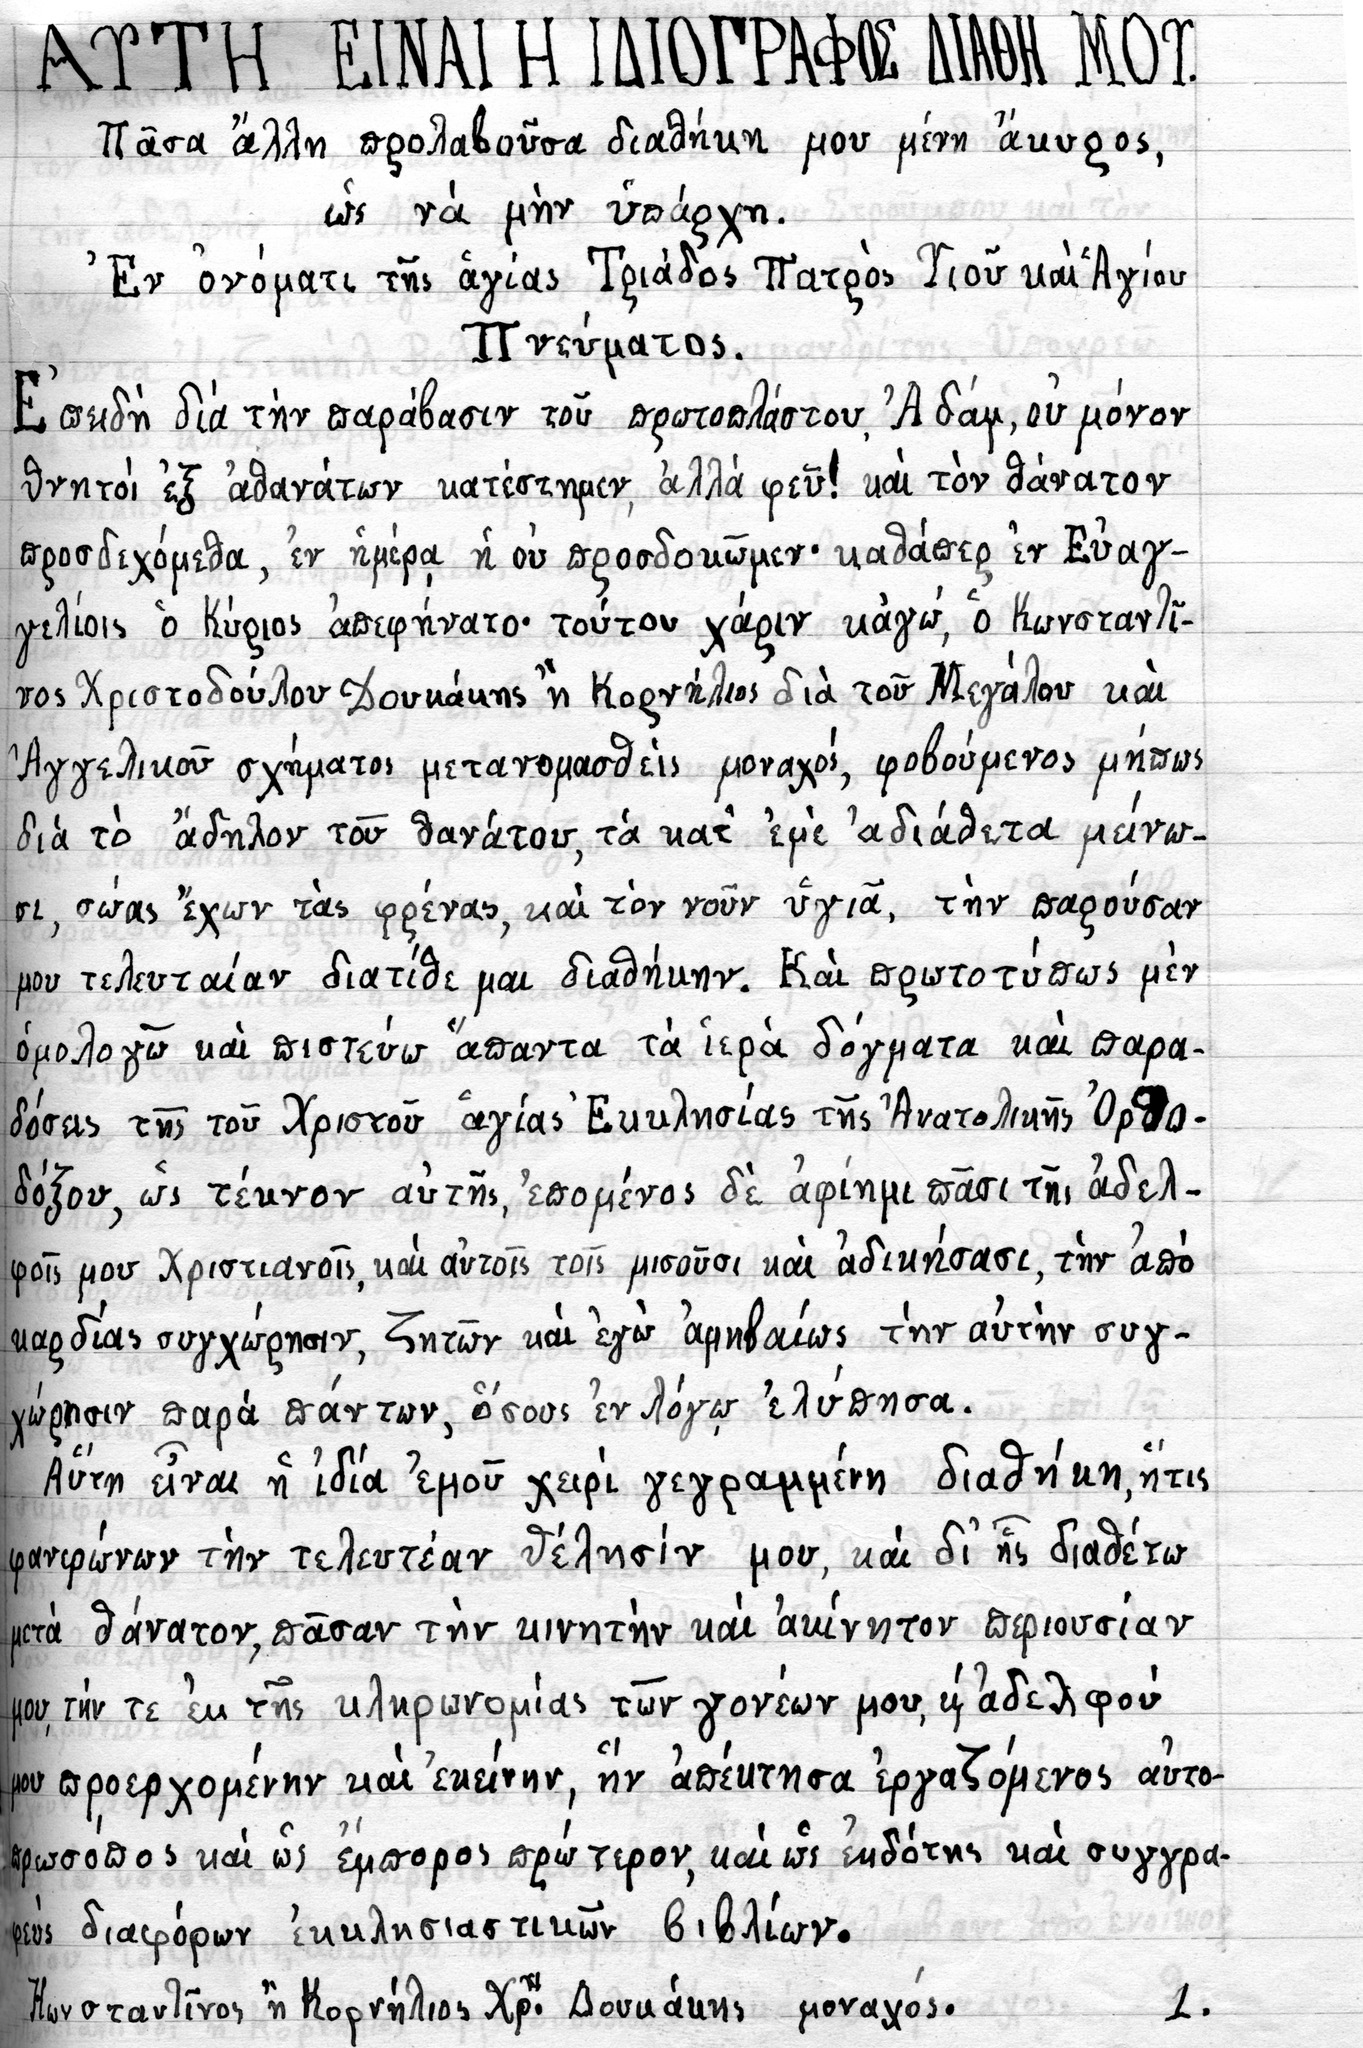 ΑΥΤΗ ΕΙΝΑΙ Η ΙΔΙΟΓΡΑΦΟΣ ΔΙΑΘΗ ΜΟΥ.
Πᾶσα ἄλλη προλαβοῦσα διαθήκη μου μένη ἄκυρος,
ὡς νά μὴν ὑπάρχη.
Ἐν ὀνόματι τῆς ἁγίας Τριάδος Πατρὸς Υἱοῦ καὶ Ἁγίου
Πνεύματος.
Ἐπειδή διά τὴν παράβασιν τοῦ πρωτοπλάστου, Ἀδάμ, οὐ μόνον
θνητοί ἐξ ἀθανάτων κατέστημεν, ἀλλά φεῦ! καὶ τὸν θάνατον
προσδεχόμεθα, ἐν ἡμέρᾳ ἡ οὐ προσδοκῶμεν· καθάπερ ἐν Εὐαγ-
γελίοις ὁ Κύριος ἀπεφήνατο· τούτου χάριν κἀγώ, ὁ Κωνσταντῖ-
νος Χριστοδούλου Δουκάκης ἢ Κορνήλιος διὰ τοῦ Μεγάλου καὶ
Ἀγγελικοῦ σχήματος μετανομασθεὶς μοναχός, φοβούμενος μήπως
διὰ τὸ ἄδηλον τοῦ θανάτου, τὰ κατ' ἐμὲ ἀδιάθετα μείνω-
σι, σώας ἔχων τὰς φρένας, καὶ τὸν νοῦν ὑγιᾶ, τὴν παρούσαν
μου τελευταίαν διατίθε μαι διαθήκην. Καὶ πρωτοτύπως μὲν
ὁμολογῶ καὶ πιστεύω ἅπαντα τὰ ἱερὰ δόγματα καὶ παρα-
δόσεις τῆς τοῦ Χριστοῦ ἁγίας Ἐκκλησίας τῆς Ἀνατολικῆς Ὀρθο-
δόξου, ὡς τέκνον αὐτῆς, ἑπομένος δὲ ἀφίημι πᾶσι τῆς ἀδελ-
φοῖς μου Χριστιανοῖς, καὶ αὐτοῖς τοῖς μισοῦσι καὶ ἀδικήσασι, τὴν ἀπὸ
καρδίας συγχώρησιν, ζητῶν καὶ ἐγὼ ἀμηβαίως τὴν αὐτὴν συγ-
χώρησιν παρὰ πάντων, ὅσους ἐν λόγῳ ἐλύπησα.
Αὕτη εἶναι ἡ ἰδία ἐμοῦ χειρὶ γεγραμμένη διαθήκη, ἥτις
φανερώνων τὴν τελευτέαν θέλησίν μου, καὶ δι' ἧς διαθέτω
μετὰ θάνατον, πᾶσαν τὴν κινητὴν καὶ ἀκίνητον περιουσίαν
μου, τήν τε ἐκ τῆς κληρωνομίας τῶν γονέων μου, ϗ ἀδελφού
μου προερχομένην καὶ ἐκείνην, ἥν ἀπέκτησα ἐργαζόμενος αὐτο-
πρωσόπος καὶ ὡς ἔμπορος πρώτερον, καὶ ὡς ἐκδότης καὶ συγγρα-
φεὺς διαφόρων ἐκκλησιαστικῶν βιβλίων.
Κωνσταντῖνος ἢ Κορνήλιος Χρ. Δουκάκης μοναχός. 1.